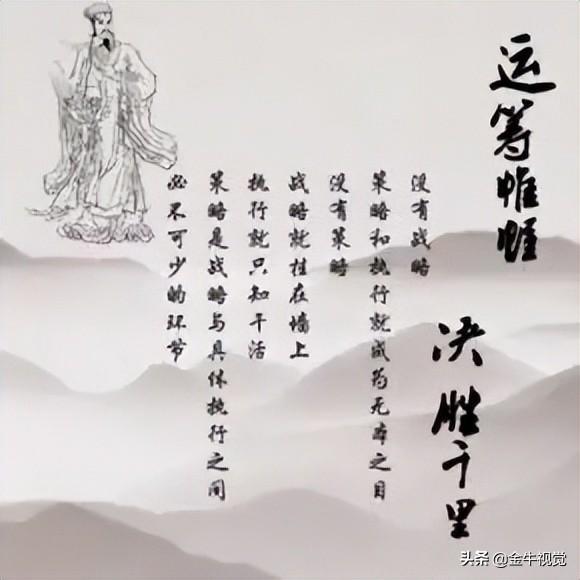 运筹帷幄
决胜千里
没有战略
策略和执行就成为无本之目
没有策略
战略就挂在墙上
执行就只知干活
策略是战略与具体执行之间
必不可少的环节
头条 @金牛视觉